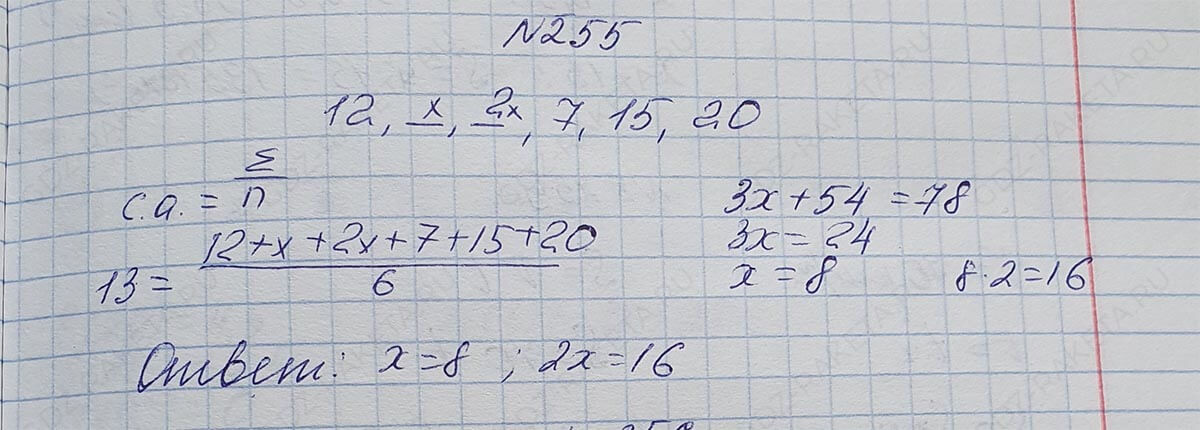 N255
12, x, 2x, 7, 15, 20
с.а. = Σ/n
13 = (12+x+2x+7+15+20)/6
3x+54=78
3x=24
x=8
8·2=16
Ответ: x=8; 2x=16